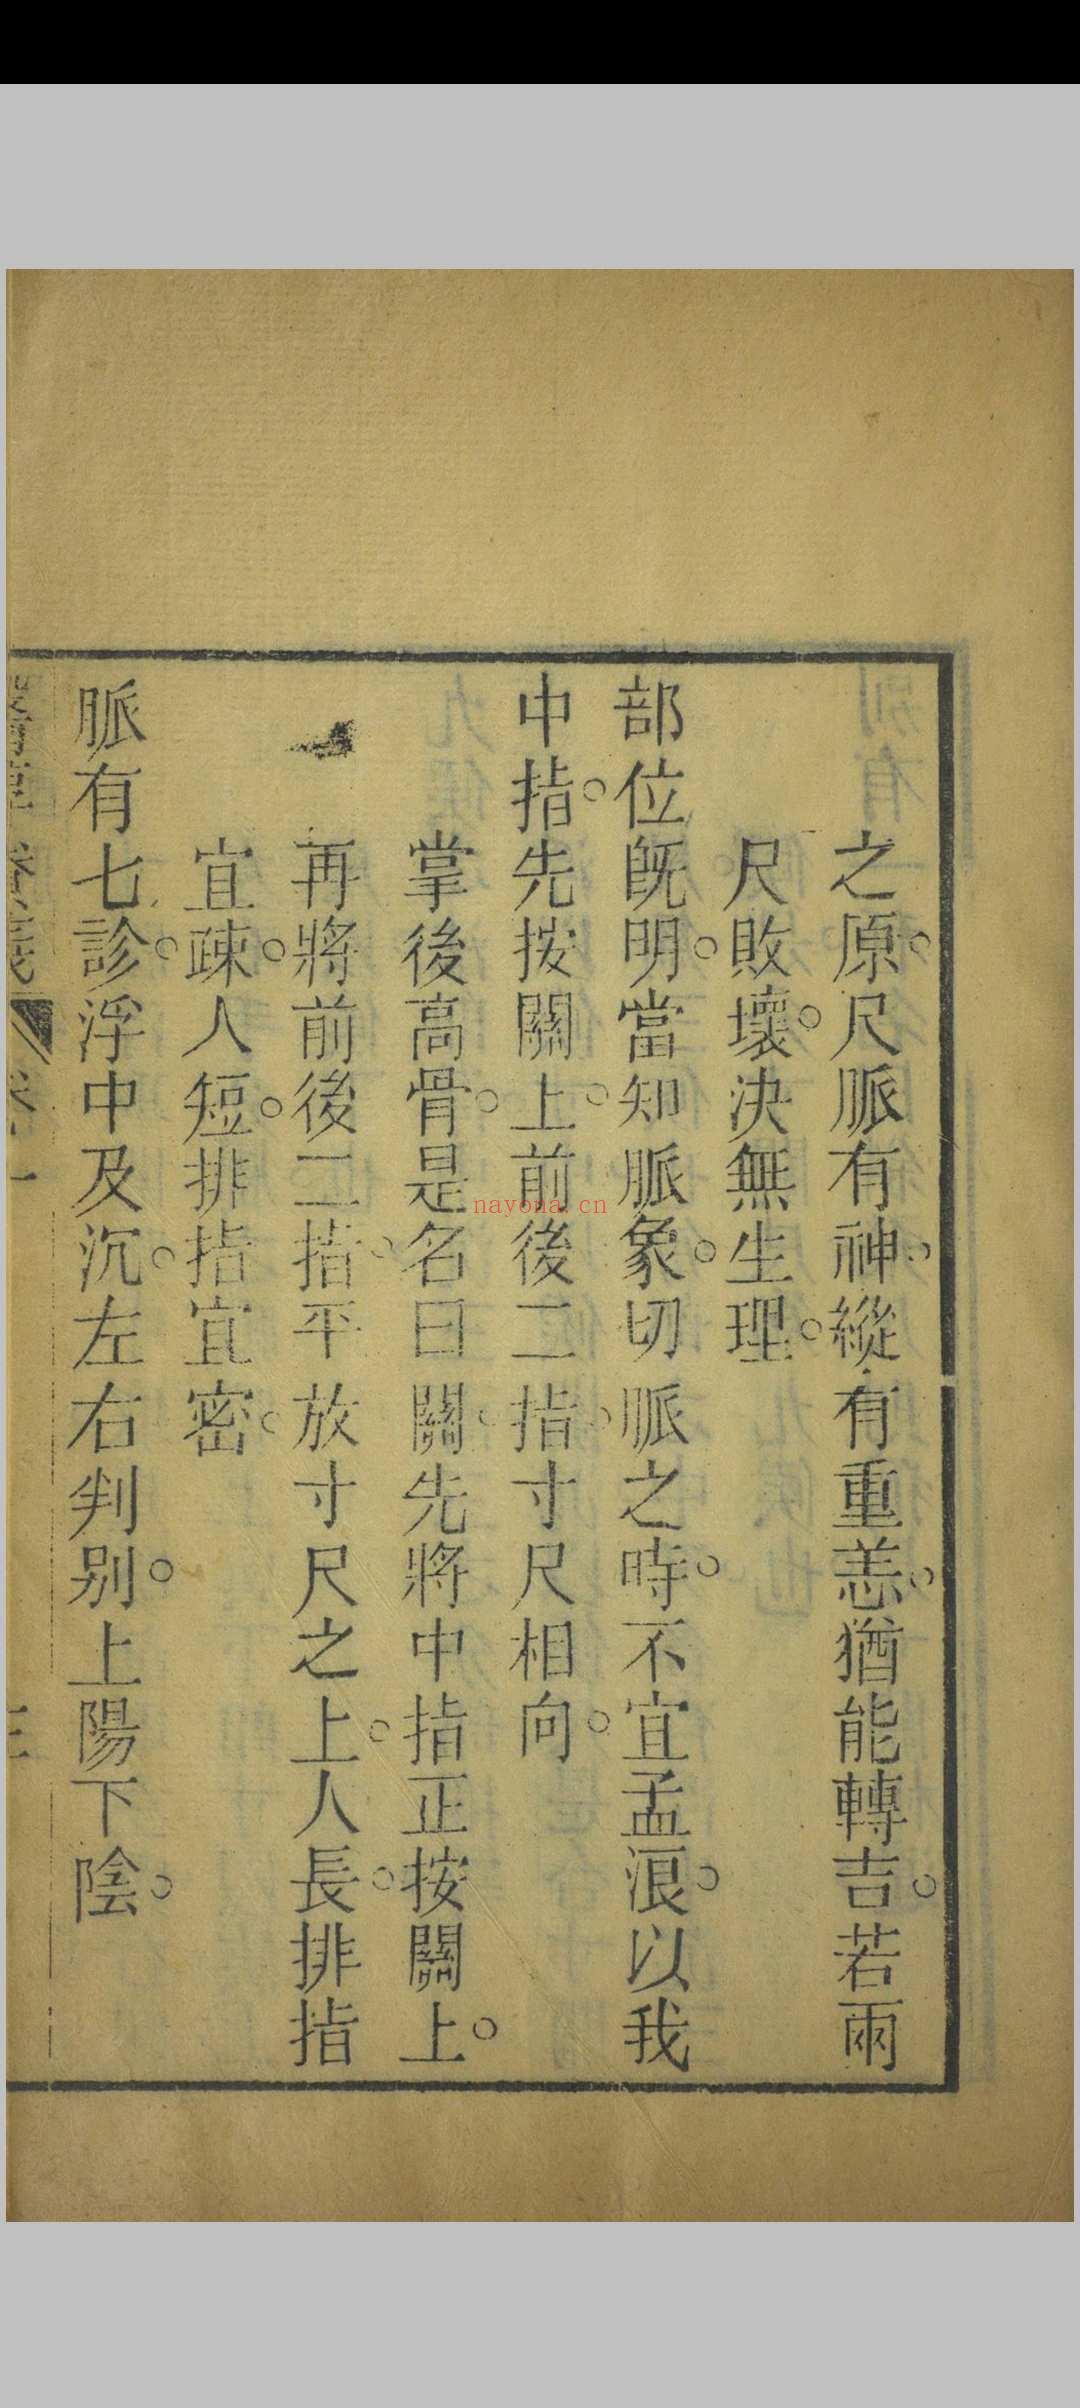 之原尺脈有神縱有重恙猶能轉吉若兩
尺敗壞決無生理
部位旣明當知脈象切脈之時不宜孟浪以我
中指先按關上前後二指寸尺相向
掌後高骨是名曰關先將中指正按關上
再將前後二指平放寸尺之上人長排指
宜疎人短排指宜密
脈有七診浮中及沉左右判別上陽下陰
nayona.cn